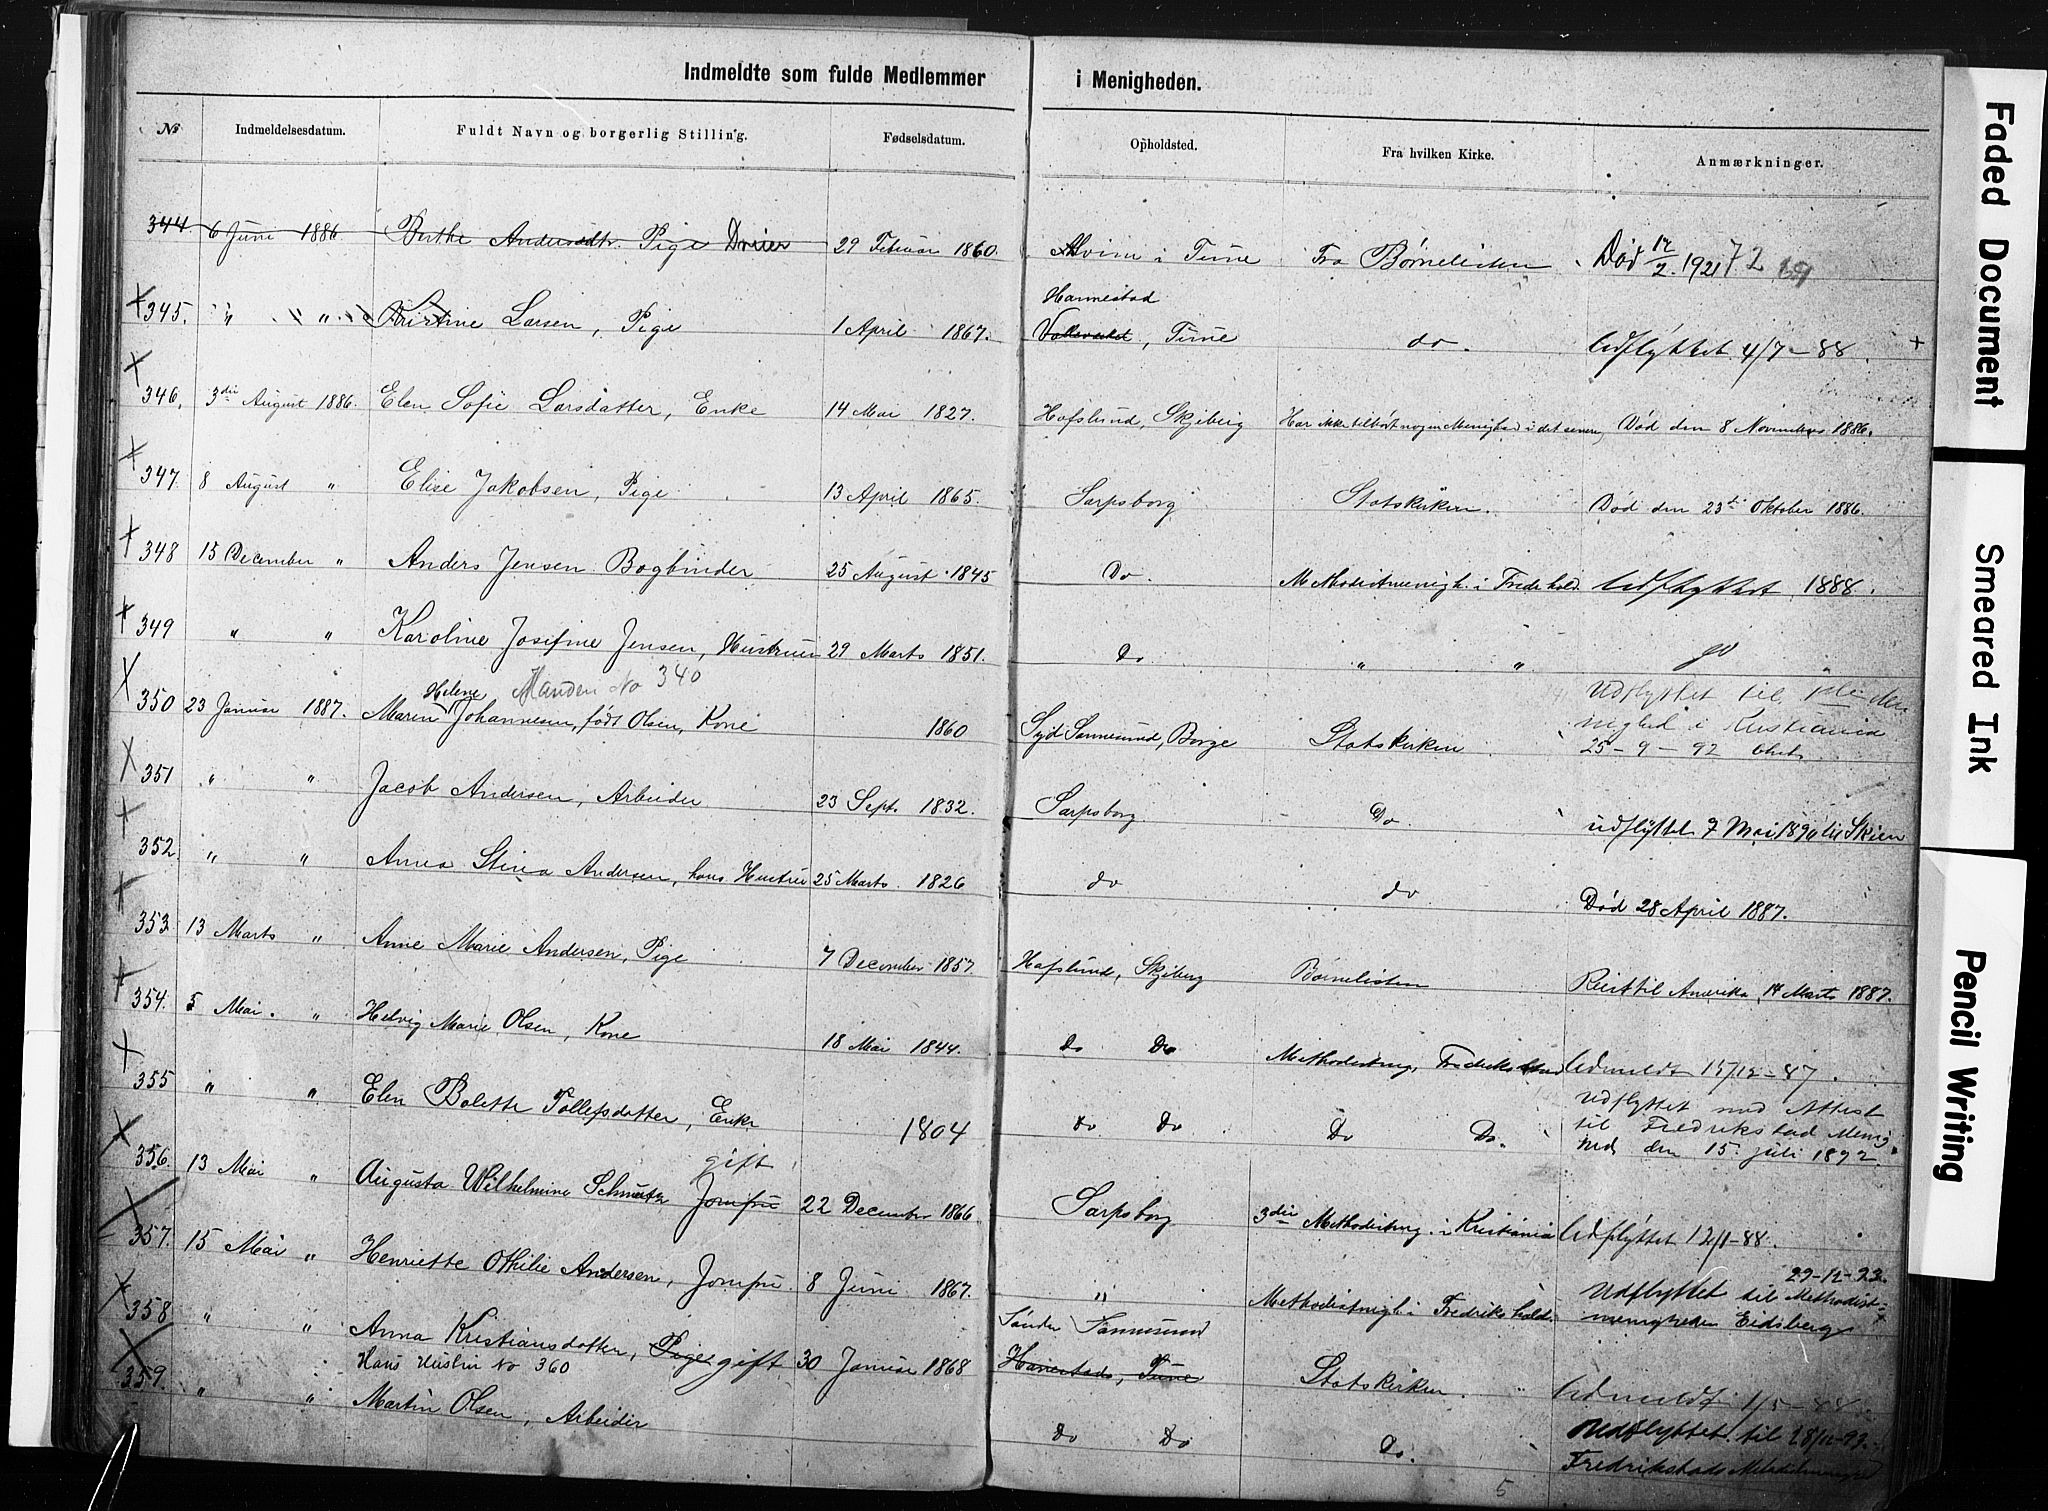 Indmeldte som fulde Medlemmer i Menigheden.
№ Indmeldelsesdatum. Fuldt Navn og borgerlig Stilling. Fødselsdatum. Opholdsted. Fra hvilken Kirke. Anmærkninger.
344. 6 Juni 1886. Berthe Andersdtr. Pige 29 Februar 1860. Alvim i Tune Fra Børnelisten Død 12/2. 1921
Hannestad
345. " " Kristine Larsen, Pige 1 April 1867. , Tune do. Udflyttet 4/7-88.
346. 3die August 1886. Elen Sofie Larsdatter, Enke 14 Mai 1827. Hafslund, Skjeberg Har ikke tilhørt nogen Menighed i det senere, Død den 8 November 1886.
347. 8 August " Elise Jakobsen, Pige 13 April 1865. Sarpsborg Statskirken. Død den 23de Oktober 1886.
348 15 December " Anders Jensen Bogbinder 25 August 1845 Do. Methodistmenigh. i Fredrhald. Udflyttet 1888.
349 " " Karoline Josefine Jensen, Hustru 29 Marts 1851. Do " " do
Helene Manden No 340
350 23 Januar 1887. Maren Johannesen, født Olsen, Kone 1860 Syd Sannesund, Borge Statskirken Udflyttet til 1ste Me
nighed i Kristiania
25-9-92
351 " " Jacob Andersen, Arbeider 23 Sept. 1832. Sarpsborg Do udflyttet 7 Mai 1890 til Skien
352. " " Anna Stina Andersen, hans Hustru 25 Marts 1826 do do Død 28 April 1887.
353 13 Marts " Anne Marie Andersen, Pige 7 December 1857 Hafslund, Skjeberg Børnelisten Reist til Amerika, 14 Marts 1887.
354. 5 Mai. " Helvig Marie Olsen, Kone 18 Mai 1844. Do Do Methodistmg. Fredrikshald Udmeldt 15/12-87.
355 " " Elen Bolette Tollefsdatter, Enke 1804 do Do Do Do. Udflyttet med Attest
til Fredrikstad Menig
hed den 15 juli 1892.
gift
356. 13 Mai " Augusta Wilhelmine Schmutz Jomfru 22 December 1866. Sarpsborg 3die Methodistmg. i Kristiania Udflyttet 12/1-88.
29-12-93.
357. 15 Mai " Henriette Othilie Andersen, Jomfru. 8 Juni 1867. " Methodistmigh. i Fredrikshald. Udflyttet til Methodist-
menigheden Eidsberg
Sønder Sannesund
358 " " Anna Kristiansdatter, Pige gift 30 Januar 1868 Hannestad, Tune Statskirken. Udmeldt 1/5-88
Hans Hustru No 360
359. " " Martin Olsen, Arbeider do Do Do. Udflyttet til 28/12-93.
Fredrikstads
5
Faded Document
Smeared Ink
Pencil Writing